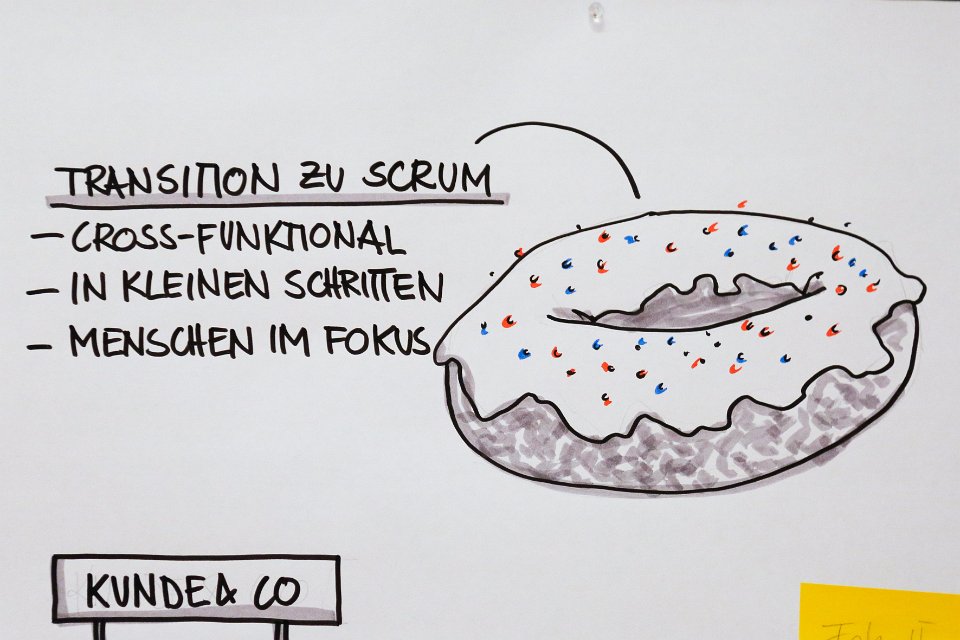 TRANSITION ZU SCRUM
– CROSS-FUNKTIONAL
– IN KLEINEN SCHRITTEN
– MENSCHEN IM FOKUS
KUNDE & CO